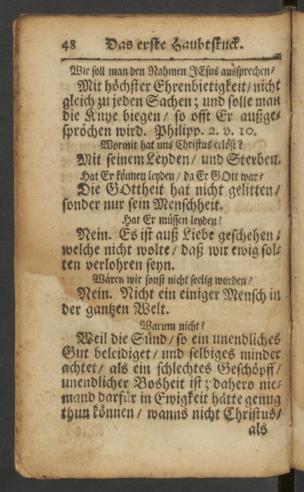 48 Das erste Haubtstuck.
Wie soll man den Nahmen JEsus aussprechen?
Mit höchster Ehrenbietigkeit / nicht
gleich zu jeden Sachen; und solle man
die Knye biegen / so offt Er außge-
sprochen wird. Philipp. 2. v. 10.
Wormit hat uns Christus erlöst?
Mit seinem Leyden / und Sterben.
Hat Er können leyden / da Er GOtt war?
Die GOttheit hat nicht gelitten /
sonder nur sein Menschheit.
Hat Er müssen leyden?
Nein. Es ist auß Liebe geschehen /
welche nicht wolte / daß wir ewig sol-
ten verlohren seyn.
Wären wir sonst nicht seelig worden?
Nein. Nicht ein einiger Mensch in
der gantzen Welt.
Warum nicht?
Weil die Sünd / so ein unendliches
Gut beleidiget / und selbiges minder
achtet / als ein schlechtes Geschöpff /
unendlicher Bosheit ist; dahero nie-
mand darfür in Ewigkeit hätte genug
thun können / wanns nicht Christus /
als